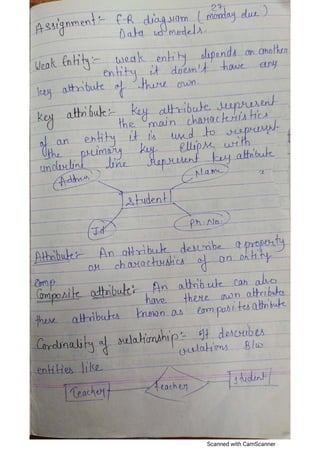 27
Assignment:- E-R diagram (monday due)
Data models.
Weak Entity:- weak entity depends on another
entity it doesn't have any
key attribute of there own.
Key attribute:- Key attribute represent
the main characteristics
of an entity it is used to represent
the primary key. Ellipse with
underline line represent key attribute
Address
Name
Student
Id
Ph. No.
Attribute:- An attribute describe a property
or characteristics of an entity
Comp
Composite attribute:- An attribute can also
have there own attributes
these attributes known as composites attribute
Cardinality of relationship:- It describes
relations B/w
entities like
Teacher
Teacher
Student
Scanned with CamScanner